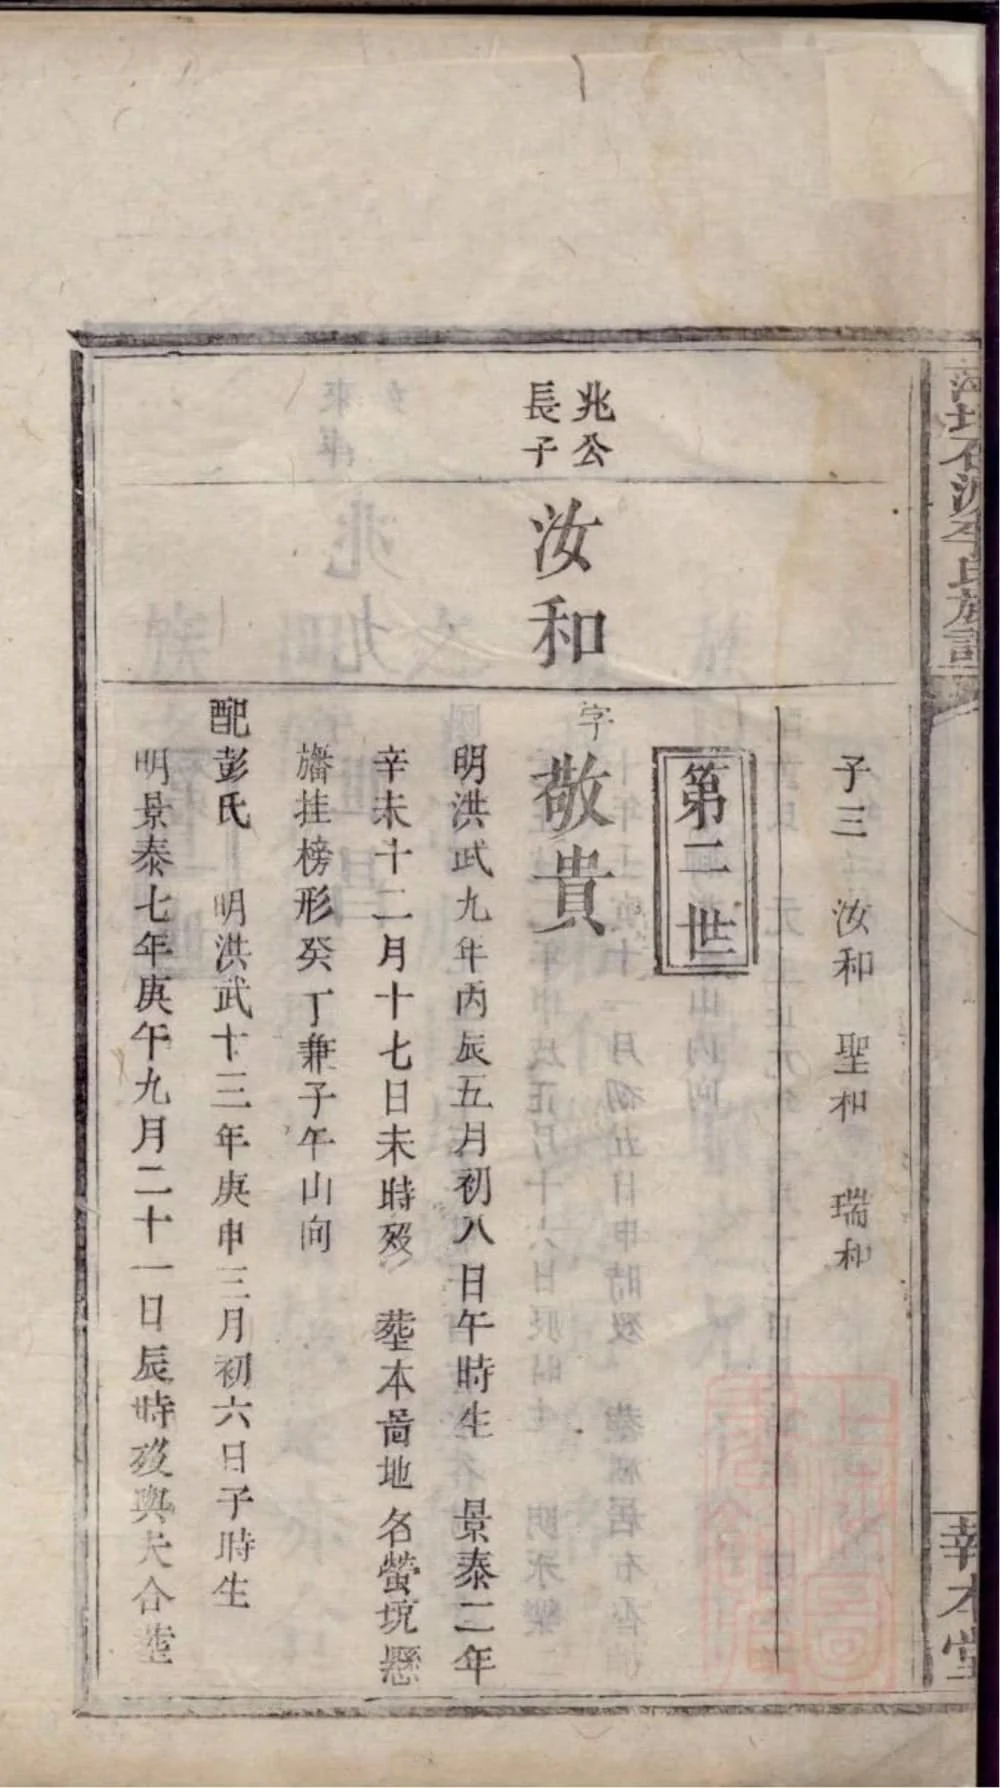 石源李氏族譜
報本堂
子三 汝和 聖和 瑞和
第二世
兆公
長子
汝和
字敬貴
明洪武九年丙辰五月初八日午時生 景泰二年
辛未十二月十七日未時歿 塟本啚地名螢境懸
旛挂榜形癸丁兼子午山向
配彭氏 明洪武十三年庚申三月初六日子時生
明景泰七年庚午九月二十一日辰時歿與夫合塟